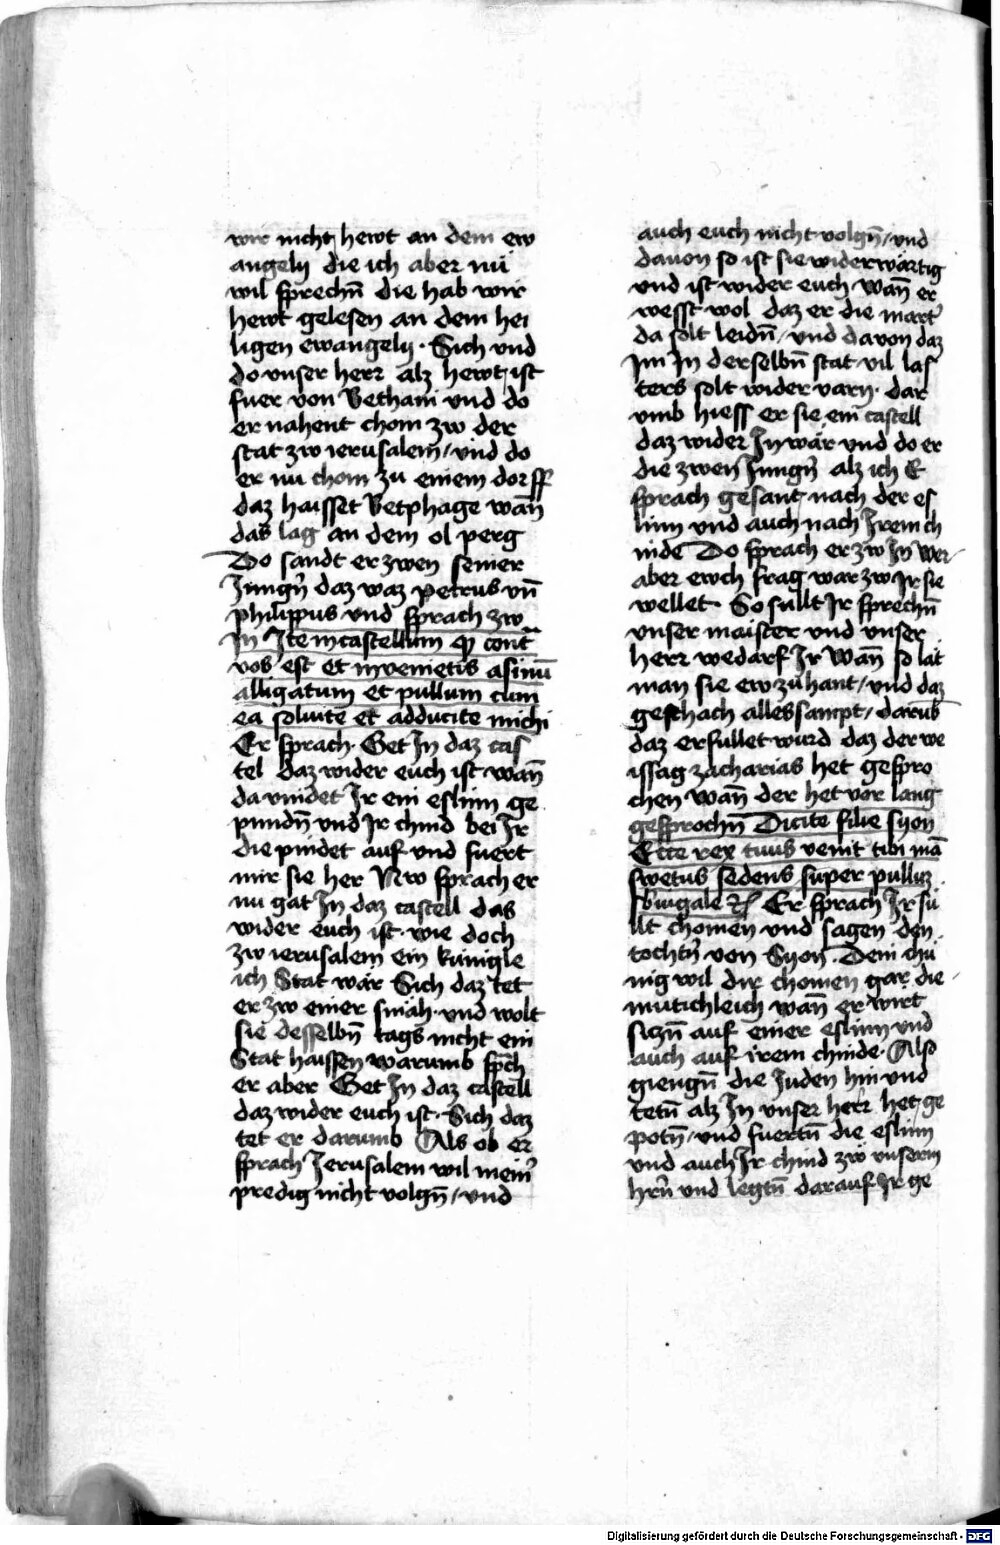 wir nicht hewt an dem ew
angely die ich aber nu
wil sprechn̄ die hab wir
hewt gelesen an dem hei
ligen ewangely · Sich und
do vnser herr alz hewt ist
fuer von Bethani vnd do
er nahent chom zw der
stat zw ierusalem / vnd do
er nu chom zu einem dorff
daz haisset Betphage wañ
das lag an dem ol perg
Do sandt er zwen seiner
Jungn̄ daz waz petrus vn̄
philippus vnd sprach zw
In Ite in castellum qd cont̄
vos est et invenietis asinū
alligatum et pullum cum
ea soluite et adducite michi
Er sprach · Get In daz cas
tel daz wider euch ist wañ
da vindet Ir ein eslinn ge
pundn̄ vnd Ir chind bei Ir
die pindet auf vnd fuert
mir sie her Nw sprach er
nu gat In daz castell das
wider euch ist · wie doch
zw ierusalem ein künigle
ich Stat wär Sich daz tet
er zw einer smäh · vnd wolt
sie desselbn̄ tags nicht ein
Stat haissen warumb spch
er aber Get In daz castell
daz wider euch ist · Sich daz
tet er darumb Als ob er
sprach Jerusalem wil meiner
predig nicht volgn̄ / vnd
auch euch nicht volgn̄ / vnd
dauon so ist sie widerwärtig
vnd ist wider euch Wañ er
wesst wol daz er die marter
da solt leidn̄ / vnd davon daz
Im In derselbn̄ stat vil las
ters solt wider varn · dar
vmb hiess er sie ein castell
daz wider In wär vnd do er
die zwen Jungn̄ alz ich E
sprach gesant nach der es
linn vnd auch nach Irem ch
inde Do sprach er zw In Wer
aber ewch frag war zw Ir sie
wellet · So sullt Ir sprechn̄
vnser maister vnd vnser
herr wedarf Ir Wañ so lat
man sie ew zu hant / vnd daz
geschach alles sampt / darub
daz erfullet wurd daz der we
issag zacharias het gespro
chen wañ der het vor lang
gesprochn̄ Dicite filie syon
Ecce rex tuus venit tibi mā
swetus sedens super pullū
sbiugale ⁊c Er sprach Ir sü
llt chomen vnd sagen den
tochtn̄ von Syon · Dein chü
nig wil dir chomen gar die
mutichleich wañ er wirt
sizn̄ auf einer eslinn vnd
auch auf irem chinde · Also
giengn̄ die Juden hin vnd
tetn̄ alz In vnser herr het ge
potn̄ / vnd fuertn̄ die eslinn
vnd auch Ir chind zw vnserm
hrn̄ vnd legtn̄ darauf Ir ge
Digitalisierung gefördert durch die Deutsche Forschungsgemeinschaft - DFG